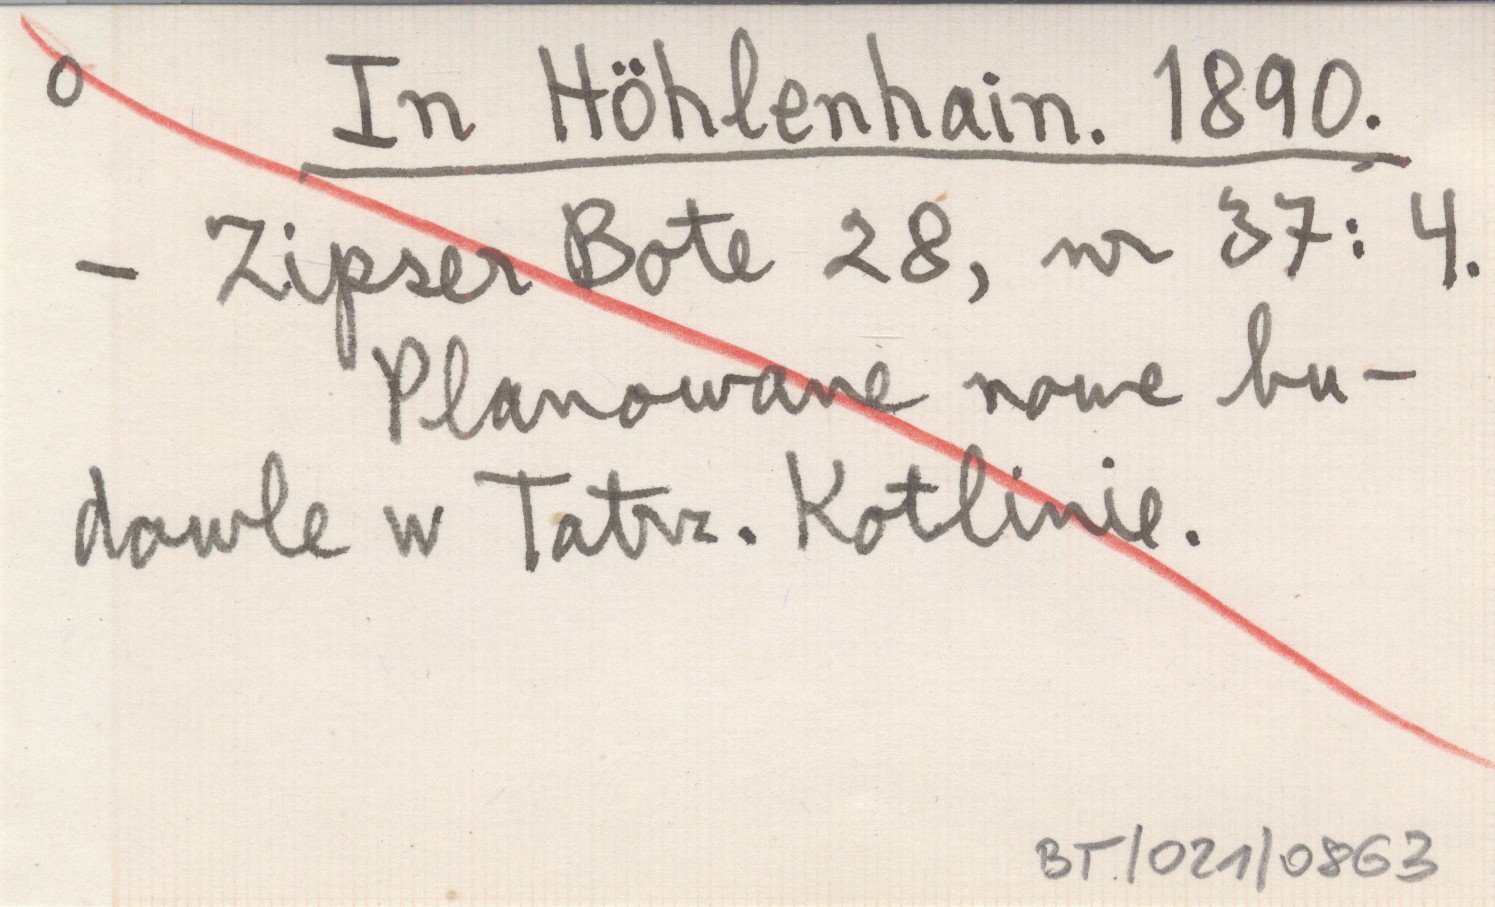 o In Höhlenhain. 1890.
– Zipser Bote 28, nr 37: 4.
Planowane nowe bu-
dowle w Tatrz. Kotlinie.
BT/021/0863